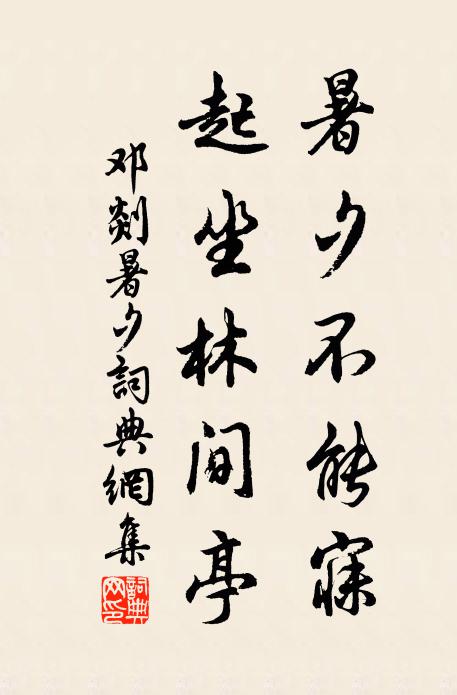 暑夕不能寐
起坐林间亭
邓剡暑夕詞典網集
詞典网印